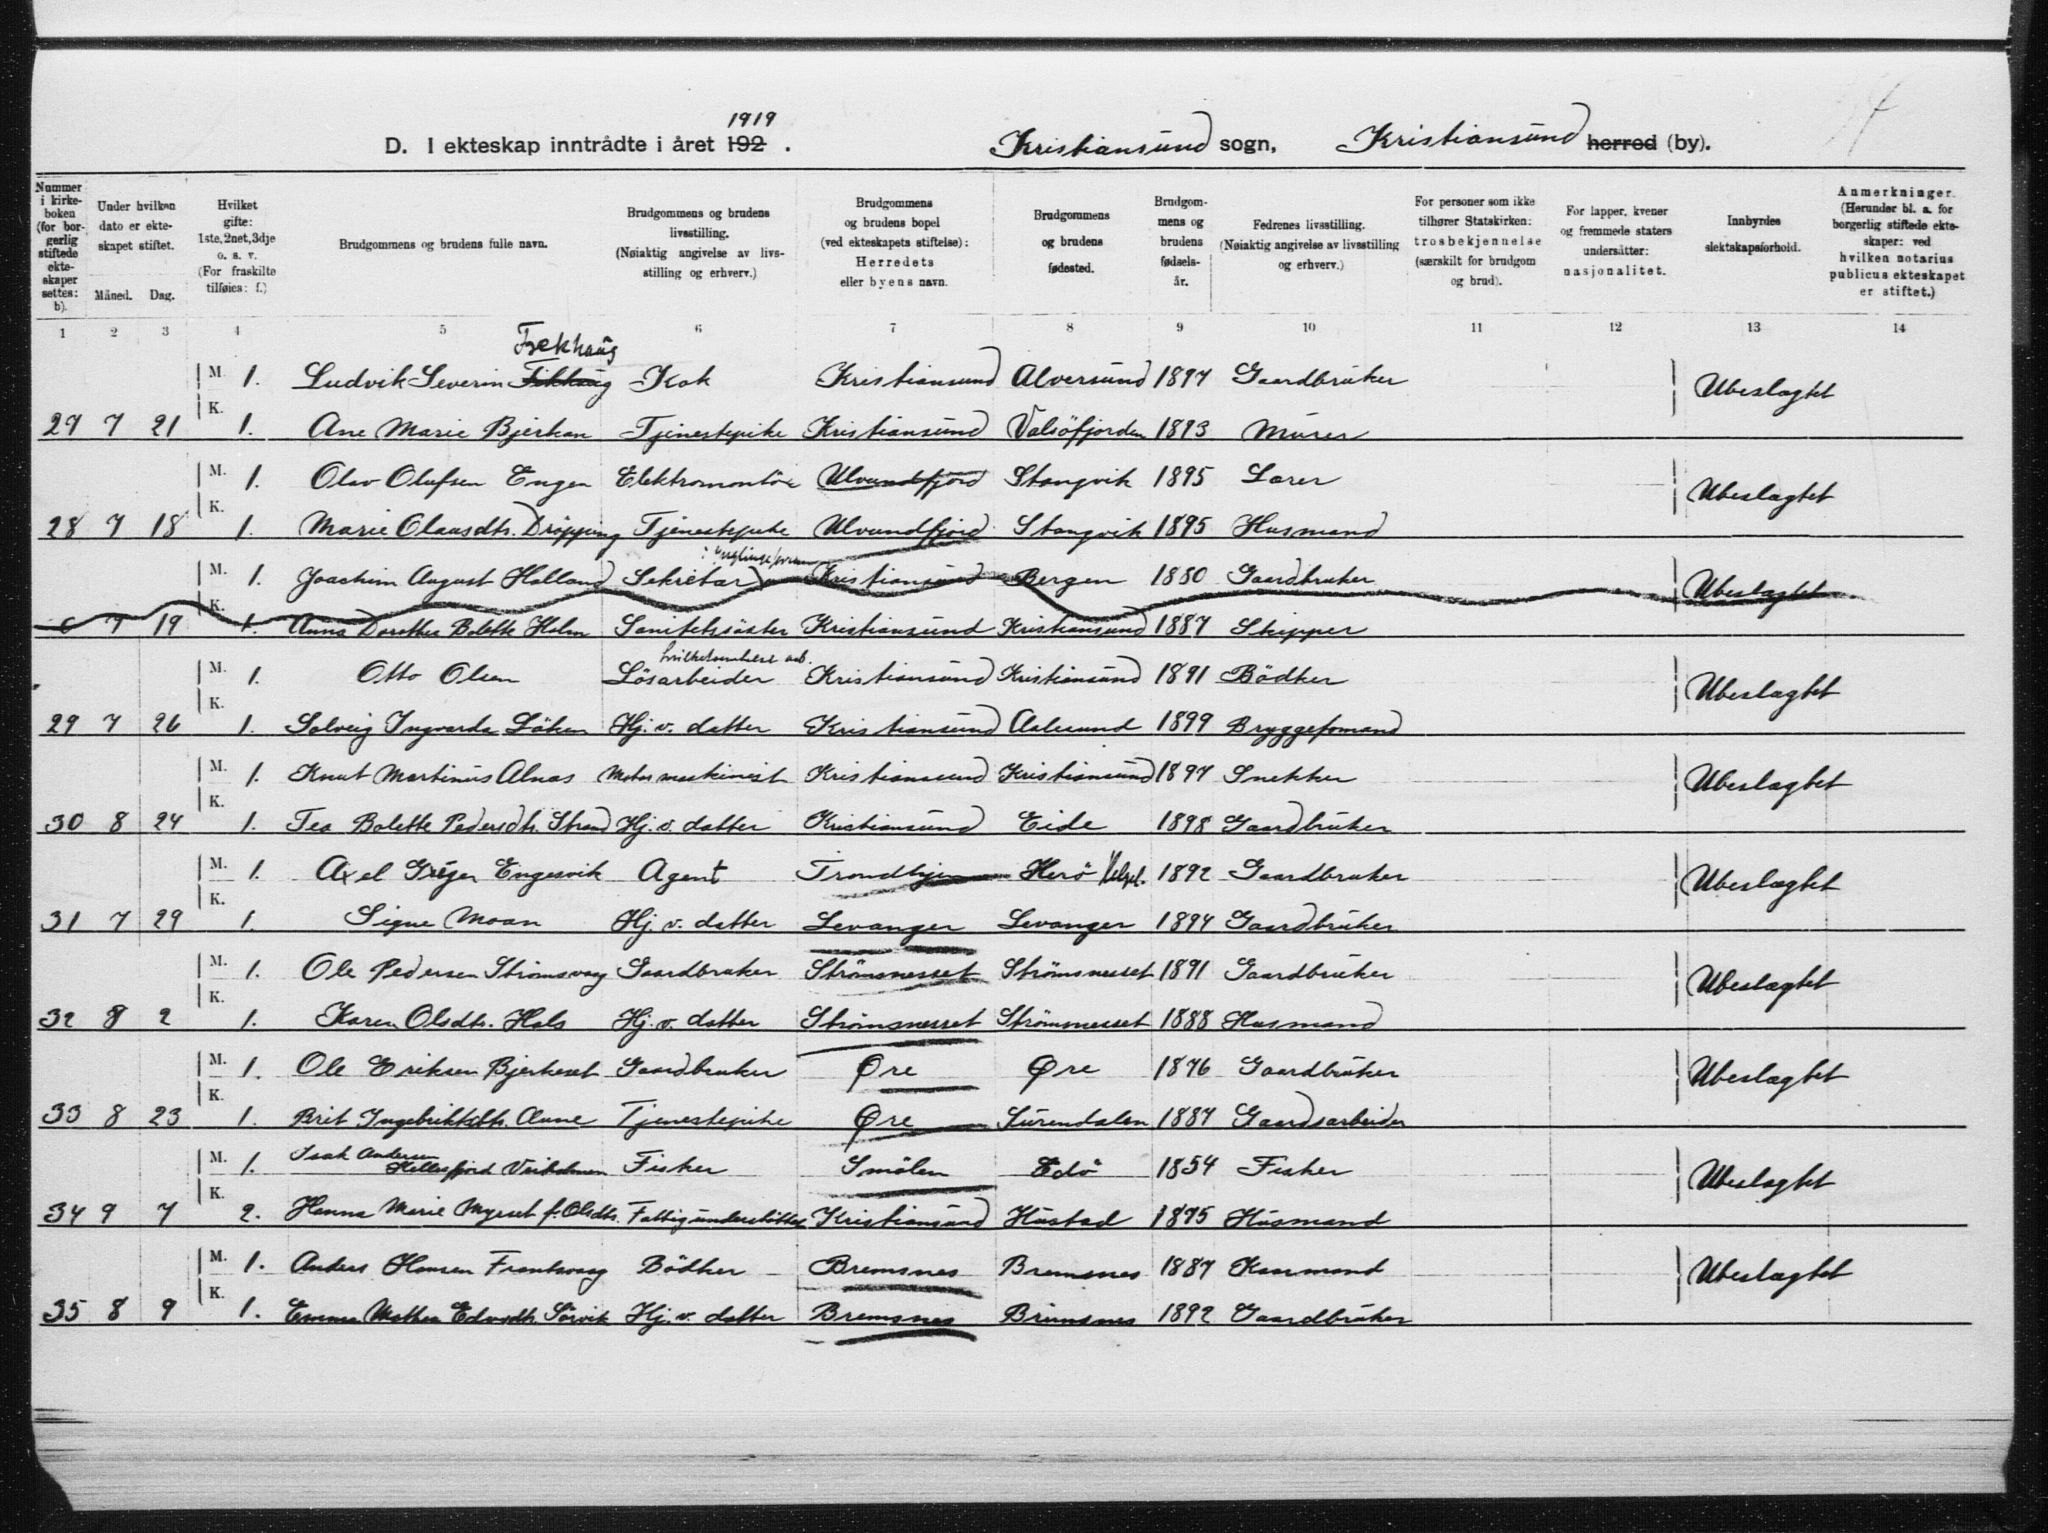 1919
D. I ekteskap inntrådte i året 192 . Kristiansund sogn, Kristiansund herred (by).
Nummer i kirkeboken (for borgerlig stiftede ekteskaper settes: b).
Under hvilken dato er ekteskapet stiftet.
Måned. Dag.
Hvilket gifte: 1ste, 2net, 3dje o. s. v. (For fraskilte tilføies: f.)
Brudgommens og brudens fulle navn.
Brudgommens og brudens livsstilling. (Nøiaktig angivelse av livsstilling og erhverv.)
Brudgommens og brudens bopel (ved ekteskapets stiftelse): Herredets eller byens navn.
Brudgommens og brudens fødested.
Brudgommens og brudens fødselsår.
Fedrenes livsstilling. (Nøiaktig angivelse av livsstilling og erhverv.)
For personer som ikke tilhører Statskirken: trosbekjennelse (særskilt for brudgom og brud).
For lapper, kvener og fremmede staters undersåtter: nasjonalitet.
Innbyrdes slektskapsforhold.
Anmerkninger. (Herunder bl. a. for borgerlig stiftede ekteskaper: ved hvilken notarius publicus ekteskapet er stiftet.)
1 2 3 4 5 6 7 8 9 10 11 12 13 14
Frekhaug
M. 1. Ludvik Severin Kok Kristiansund Alversund 1897 Gaardbruker Ubeslagtet
K.
27 7 21 1. Ane Marie Bjerkan Tjenestepike Kristiansund Valsöfjorden 1893 Murer
M. 1. Olav Olufsen Engen Elektromontör Ulvundfjord Stangvik 1895 Lærer Ubeslagtet
K.
28 7 18 1. Marie Olausdtr. Dröppung Tjenestepike Ulvundfjord Stangvik 1895 Husmand
M. 1. Joachim August Holland Sekretær Kristiansund Bergen 1880 Gaardbruker Ubeslagtet
K.
7 19 1. Anna Dorothea Bolette Holm Sanitetssöster Kristiansund Kristiansund 1887 Skipper
M. 1. Otto Olsen Lösarbeider Kristiansund Kristiansund 1891 Bödker Ubeslagtet
K.
29 7 26 1. Solveig Ingvarda Löken Hj. v. datter Kristiansund Aalesund 1899 Bryggefomand
M. 1. Knut Martinus Alnæs Motormaskinist Kristiansund Kristiansund 1897 Snekker Ubeslagtet
K.
30 8 24 1. Tea Bolette Pedersdtr. Strand Hj. v. datter Kristiansund Eide 1898 Gaardbruker
M. 1. Axel Engesvik Agent Trondhjem Herö Helgel. 1892 Gaardbruker Ubeslagtet
K.
31 7 29 1. Signe Moan Hj. v. datter Levanger Levanger 1894 Gaardbruker
M. 1. Ole Pedersen Strömsvaag Gaardbruker Strömsnesset Strömsnesset 1891 Gaardbruker Ubeslagtet
K.
32 8 2 1. Karen Olsdtr. Hals Hj. v. datter Strömsnesset Strömsnesset 1888 Husmand
M. 1. Ole Eriksen Bjerkeset Gaardbruker Øre Øre 1876 Gaardbruker Ubeslagtet
K.
33 8 23 1. Brit Ingebriktsdtr. Aune Tjenestepike Øre Surendalen 1887 Gaardsarbeider
M. 1. Isak Andersen
Fisker Smölen Edö 1854 Fisker Ubeslagtet
K.
34 9 7 2. Hanna Marie Myrset f. Olsdtr. Fattigunderstöttet Kristiansund Hustad 1875 Husmand
M. 1. Anders Hansen Frantsvaag Bödker Bremsnes Bremsnes 1887 Kaarmand Ubeslagtet
K.
35 8 9 1. Emma Mathea Edvsdtr. Sörvik Hj. v. datter Bremsnes Bremsnes 1892 Gaardbruker